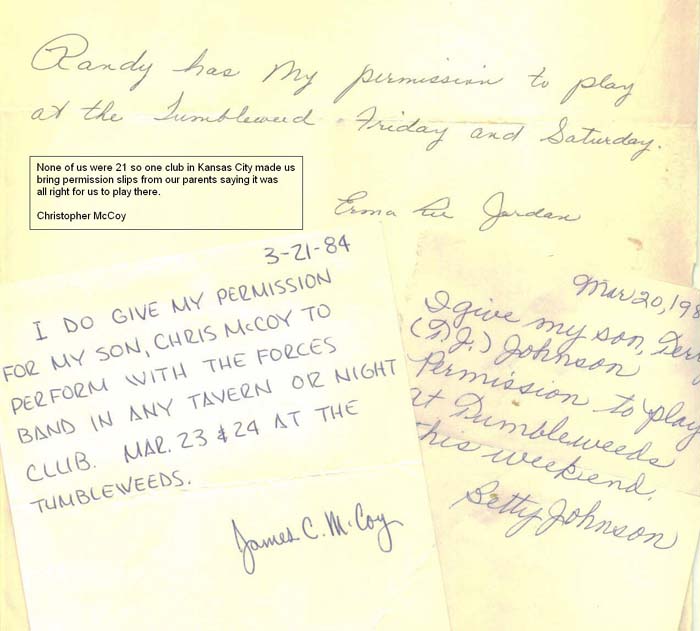 Randy has my permission to play
at the Tumbleweed Friday and Saturday.
Erma Lee Jordan
None of us were 21 so one club in Kansas City made us
bring permission slips from our parents saying it was
all right for us to play there.
Christopher McCoy
3-21-84
I DO GIVE MY PERMISSION
FOR MY SON, CHRIS McCOY TO
PERFORM WITH THE FORCES
BAND IN ANY TAVERN OR NIGHT
CLUB. MAR. 23 & 24 AT THE
TUMBLEWEEDS.
James C. McCoy
Mar 20, 198
I give my son, Derr
(D.J.) Johnson
Permission to play
at Tumbleweeds
this weekend.
Betty Johnson